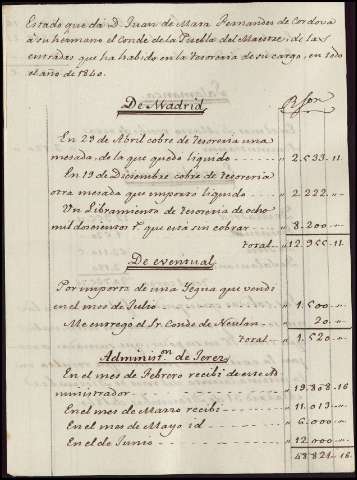 Estado que da D. Juan de Mara Fernandes de Cordova
a su hermano el Conde de la Puebla del Maestre: de las
entradas que ha habido en la tesoreria de su cargo, en todo
el año de 1840.
De Madrid
Rs von
En 29 de Abril cobre de tesoreria una
mesada, de la que quedo liquido - - - - " 2.533. 11.
En 19 de Diciembre cobre de tesoreria
otra mesada que importó liquido - - - " 2.222. "
Un Libramiento de tesoreria de ocho
mil doscientos rs. que esta sin cobrar " 8.200. "
total - - " 12.955 11.
De eventual
Por importe de una Yegua que vendi
en el mes de Julio - - - - " 1.500. "
Me entregó el Sr. Conde de Neulan - - " 20. "
total - - " 1.520. "
Administon. de Jerez
En el mes de Febrero recibi de este Ad
ministrador - - - - " 19.808. 16
En el mes de Marzo recibi - - - " 11.013. "
En el mes de Mayo id - - - - " 6.000. "
En el de Junio - - - - " 12.000. "
48.821. 16.